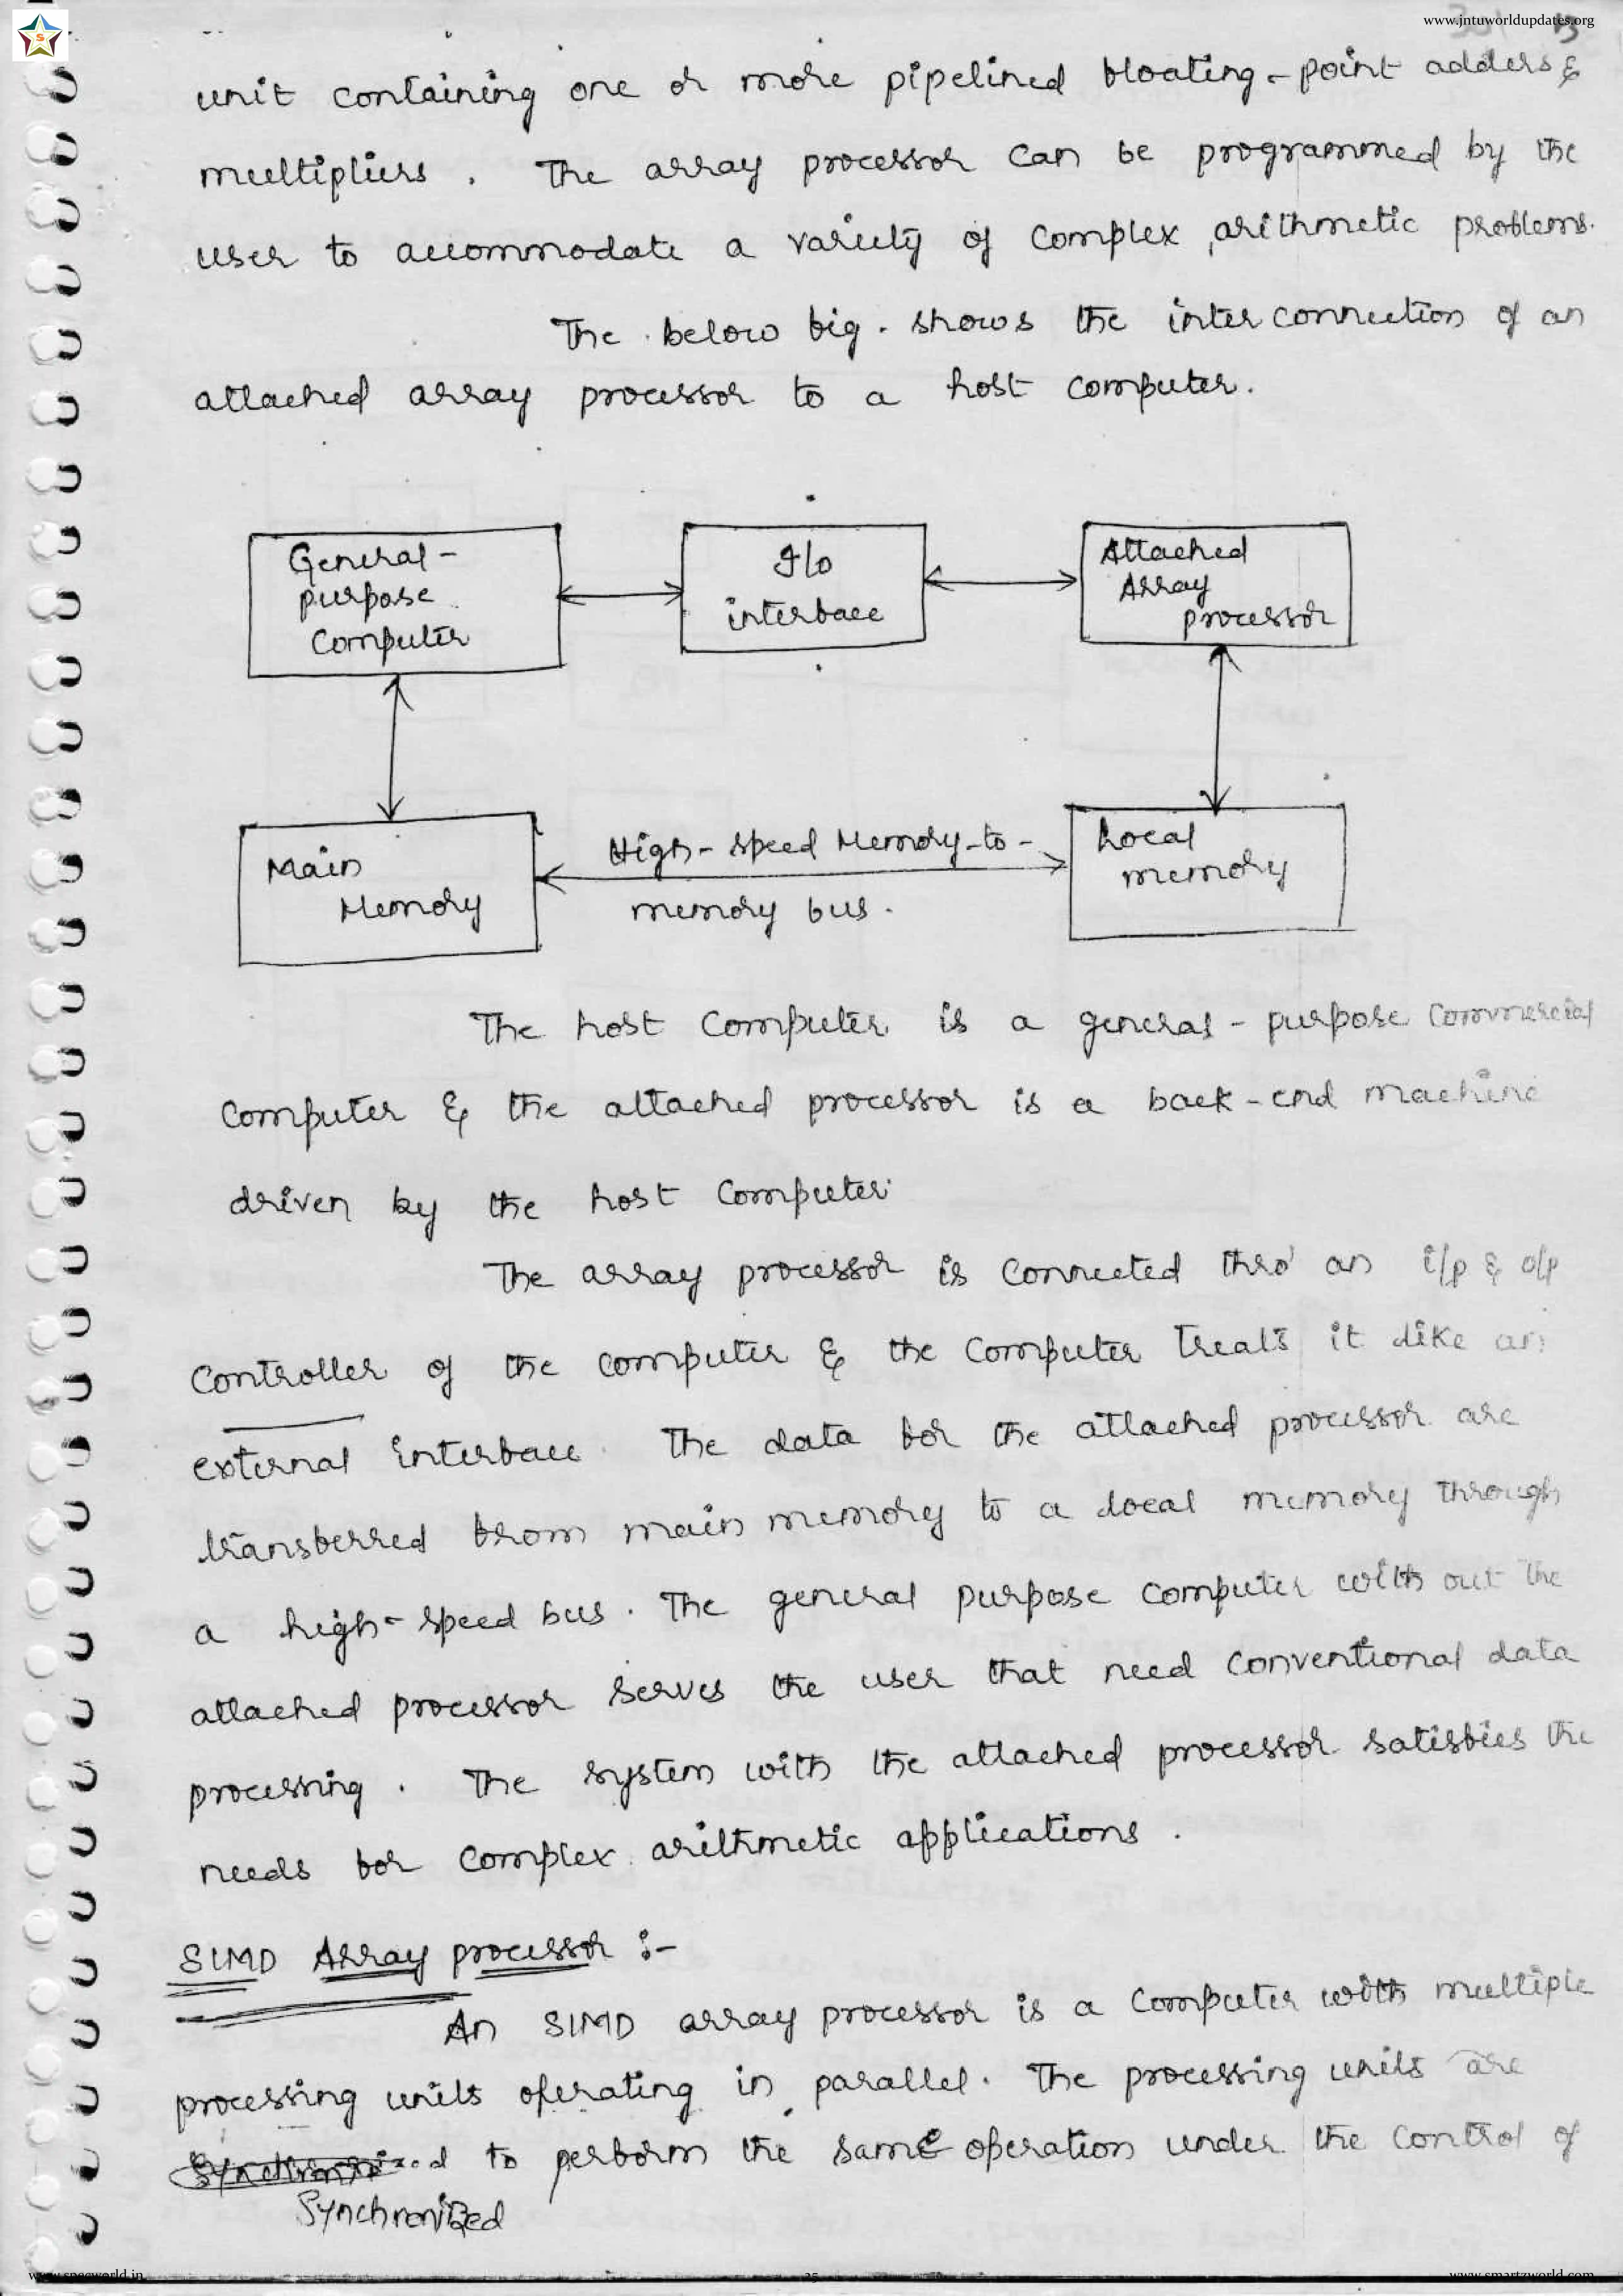 www.jntuworldupdates.org
unit containing one or more pipelined floating-point adders &
multipliers. The array processor can be programmed by the
user to accommodate a variety of complex arithmetic problems.
The below fig. shows the inter connection of an
attached array processor to a host computer.
General-
purpose
Computer
I/o
interface
Attached
Array
processor
Main
Memory
High-speed Memory-to-
memory bus.
Local
memory
The host computer is a general-purpose commercial
computer & the attached processor is a back-end machine
driven by the host computer.
The array processor is connected thro' an i/p & o/p
controller of the computer & the computer treats it like an
external interface. The data for the attached processor are
transferred from main memory to a local memory through
a high-speed bus. The general purpose computer with out the
attached processor serves the user that need conventional data
processing. The system with the attached processor satisfies the
needs for complex arithmetic applications.
SIMD Array processor :-
An SIMD array processor is a computer with multiple
processing units operating in parallel. The processing units are
to perform the same operation under the control of
Synchronized
www.specworld.in
25
www.smartzworld.com